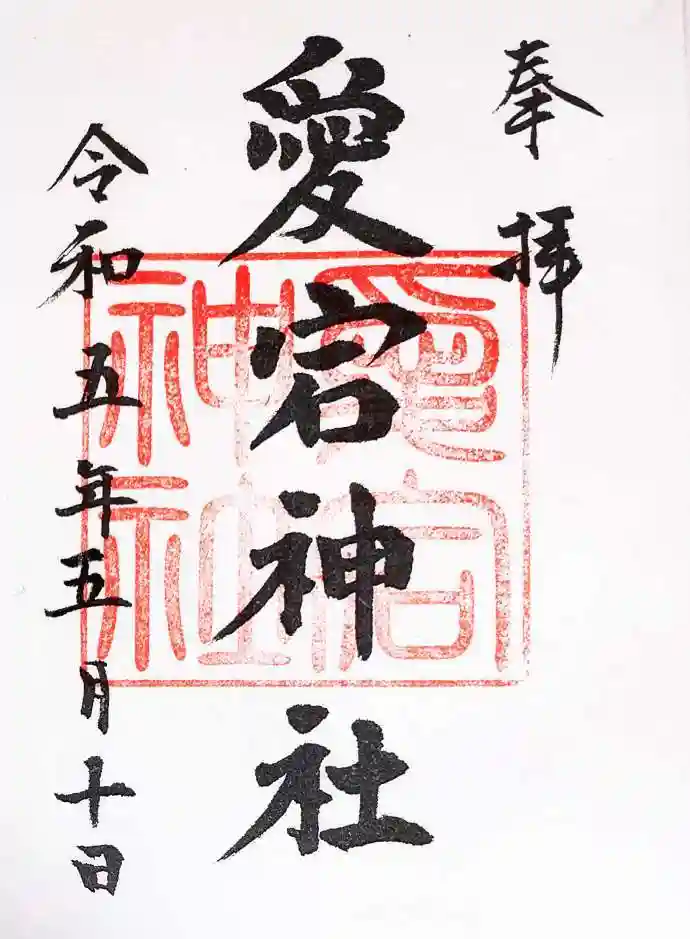 奉拝
愛宕神社
愛宕神社
令和五年五月十日